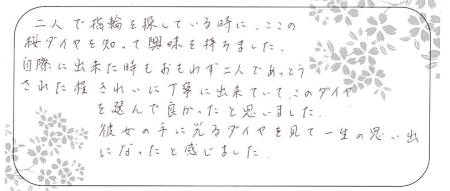 二人で指輪を探している時に、ここの
桜ダイヤを知って興味を持ちました。
実際に出来た時もおもわず二人であっとう
された程きれいに丁寧に出来ていて、このダイヤ
を選んで良かったと思いました。
彼女の手に光るダイヤを見て一生の思い出
になったと感じました。